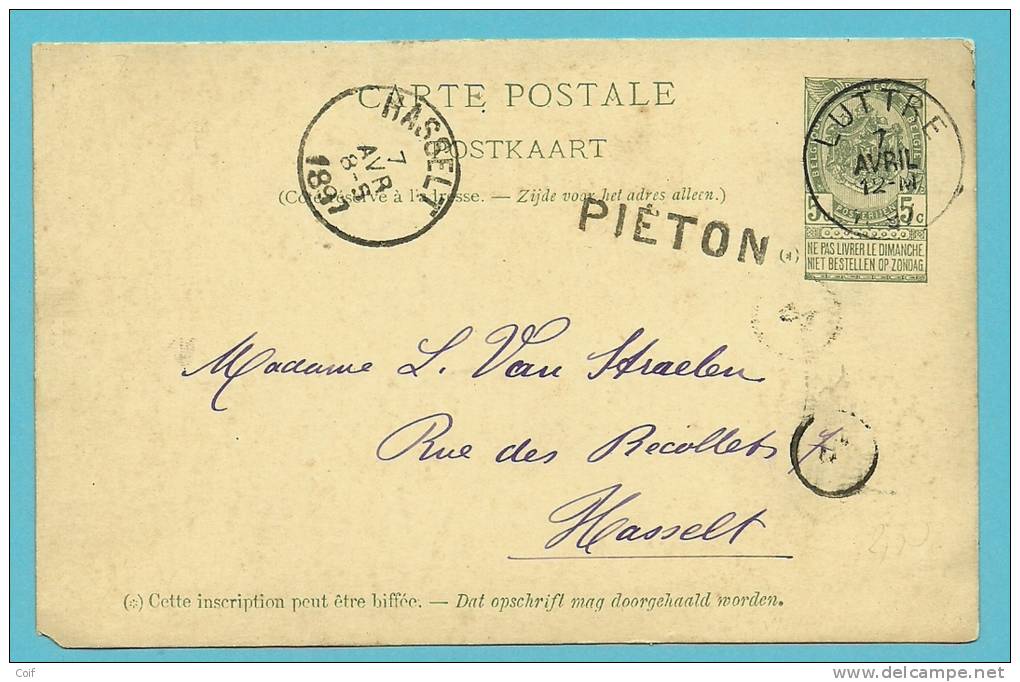 CARTE POSTALE
POSTKAART
(Côté réservé à l'adresse. — Zijde voor het adres alleen.)
HASSELT
7
AVR
8-S
1897
LUTTRE
7
AVRIL
12-M
BELGIQUE
BELGIE
POSTERIJEN
5c 5c
NE PAS LIVRER LE DIMANCHE
NIET BESTELLEN OP ZONDAG
PIÉTON
(*)
Madame L. Van Straelen
Rue des Recollets
Hasselt
(*) Cette inscription peut être biffée. — Dat opschrift mag doorgehaald worden.
Coif
www.delcampe.net